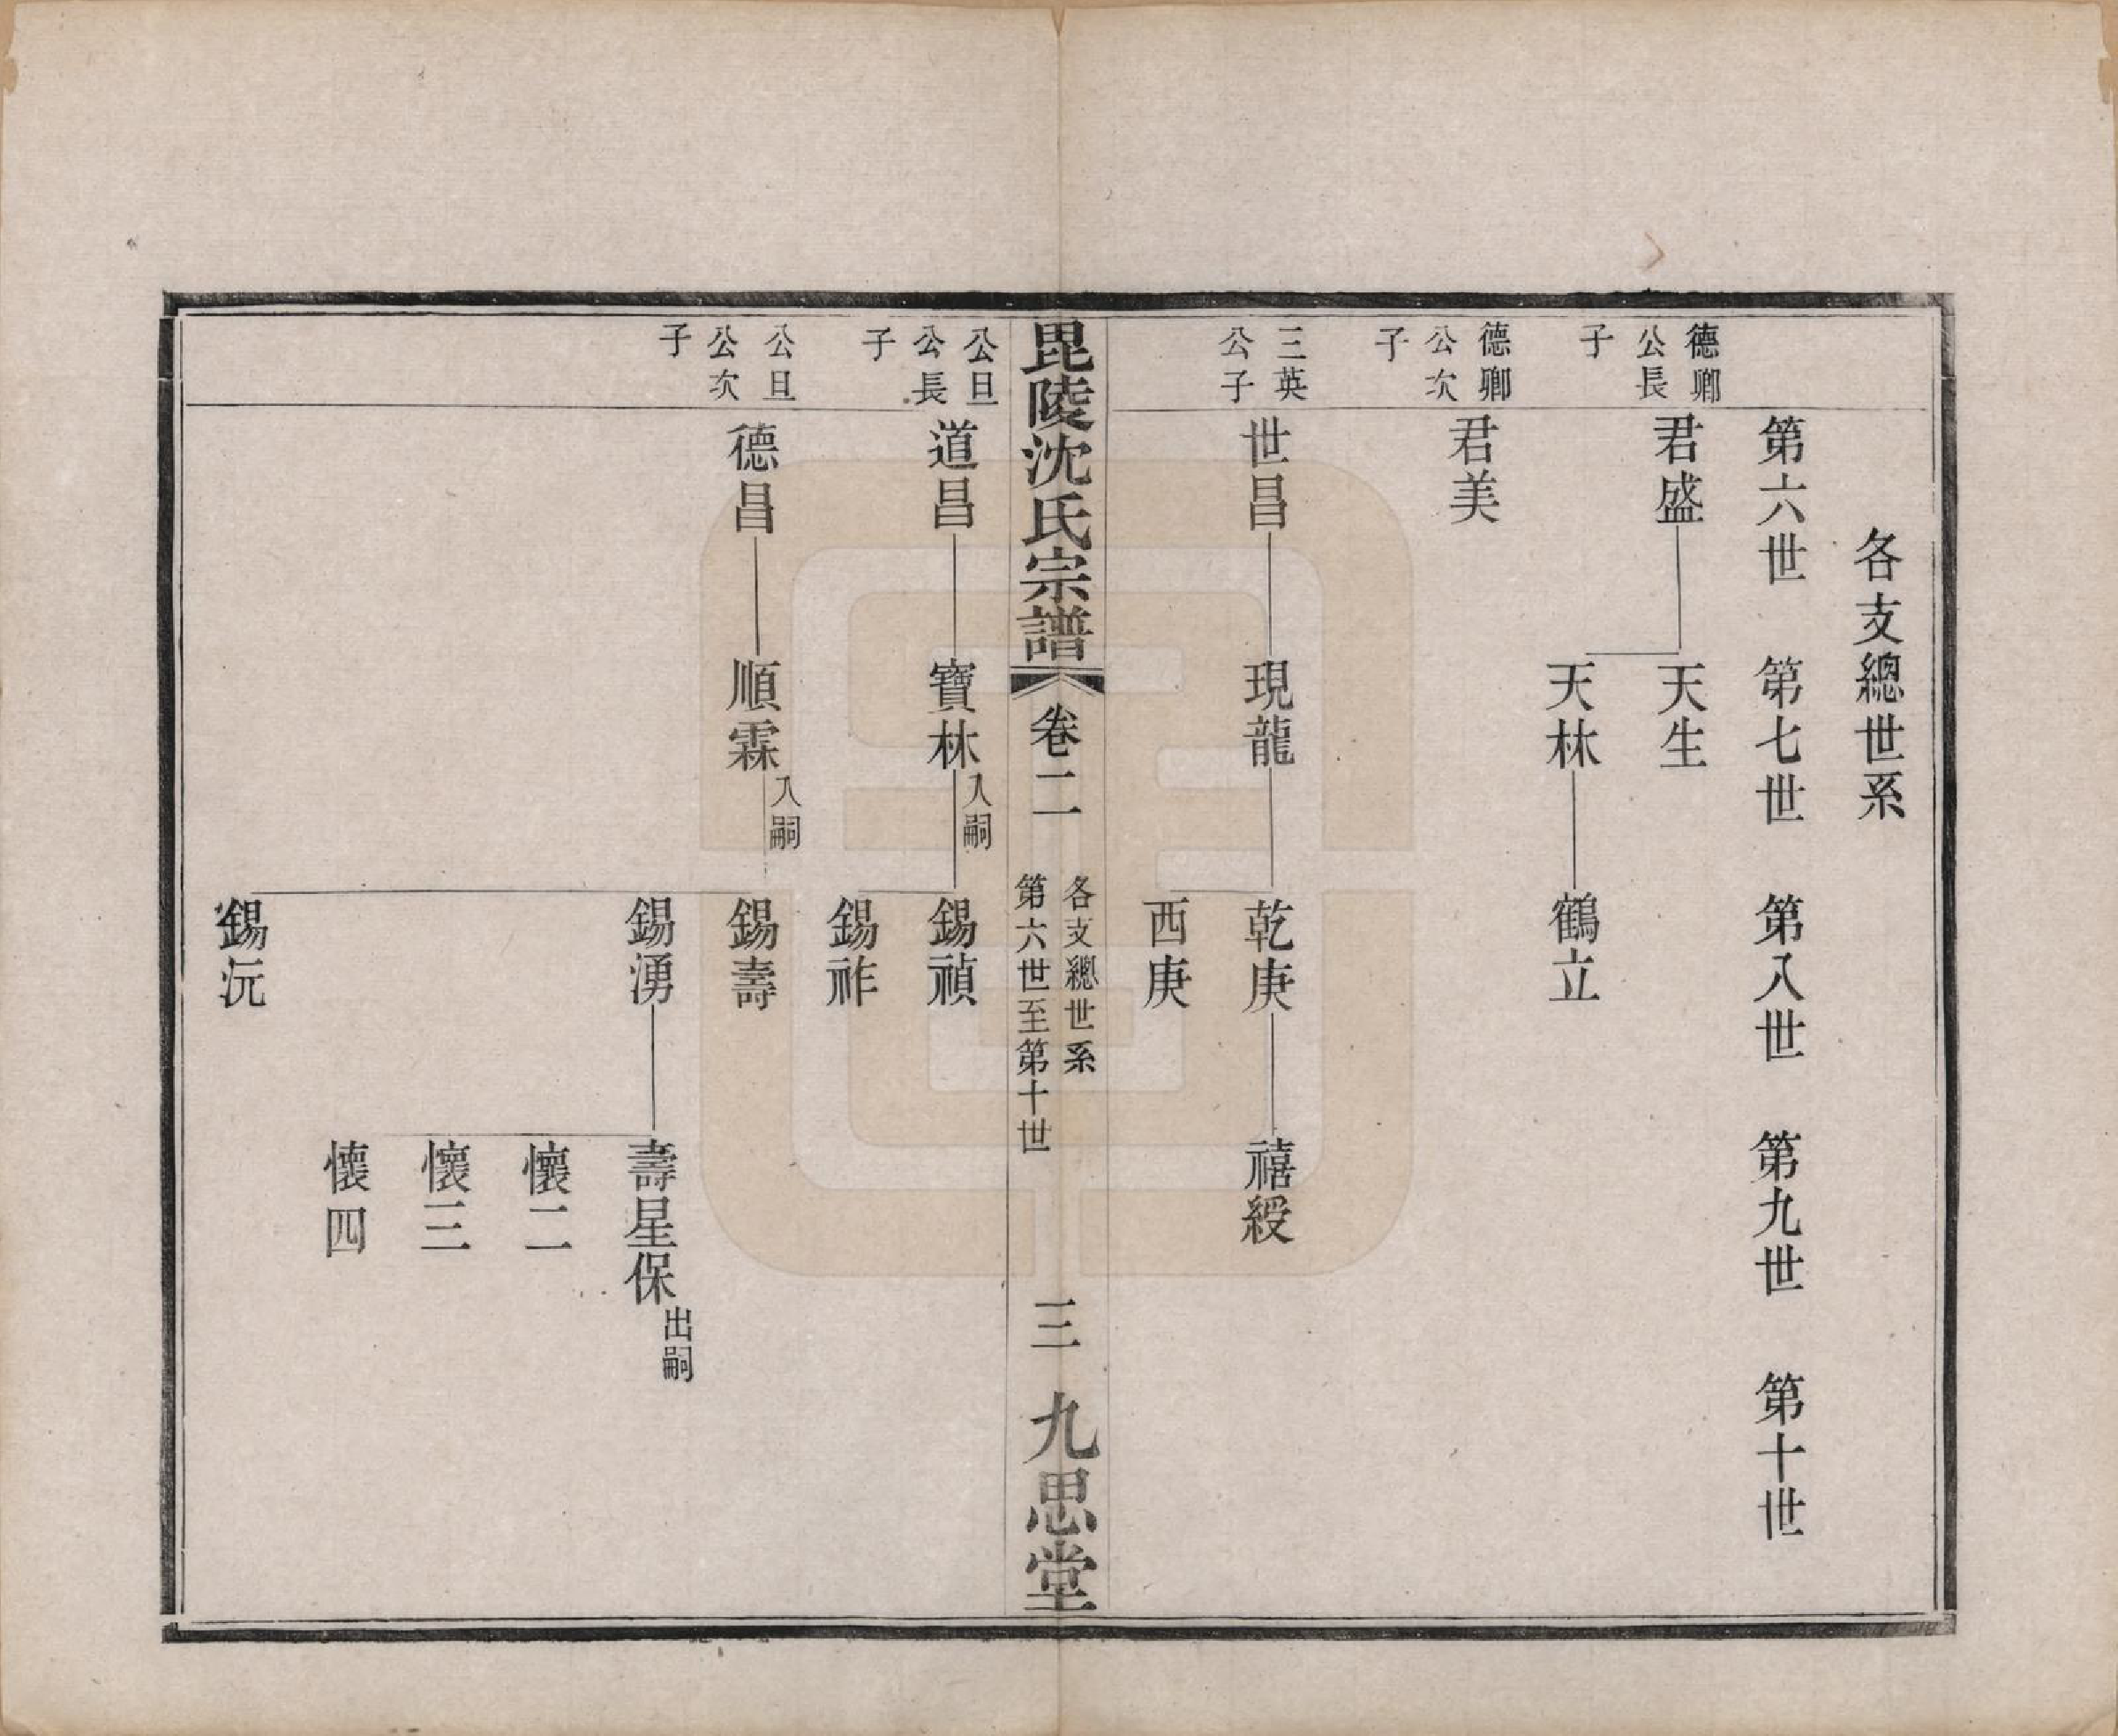 各支總世系
第六世 第七世 第八世 第九世 第十世
德卿公長子 君盛 天生
天林 鶴立
德卿公次子 君美
三英公子 世昌 現龍 乾庚 禧綬
西庚
毘陵沈氏宗譜 卷二 各支總世系 第六世至第十世 三 九思堂
公旦公長子 道昌 寶林 入嗣 錫禎
錫祚
公旦公次子 德昌 順霖 入嗣 錫壽
錫湧 壽星保 出嗣
懷二
懷三
懷四
錫沅